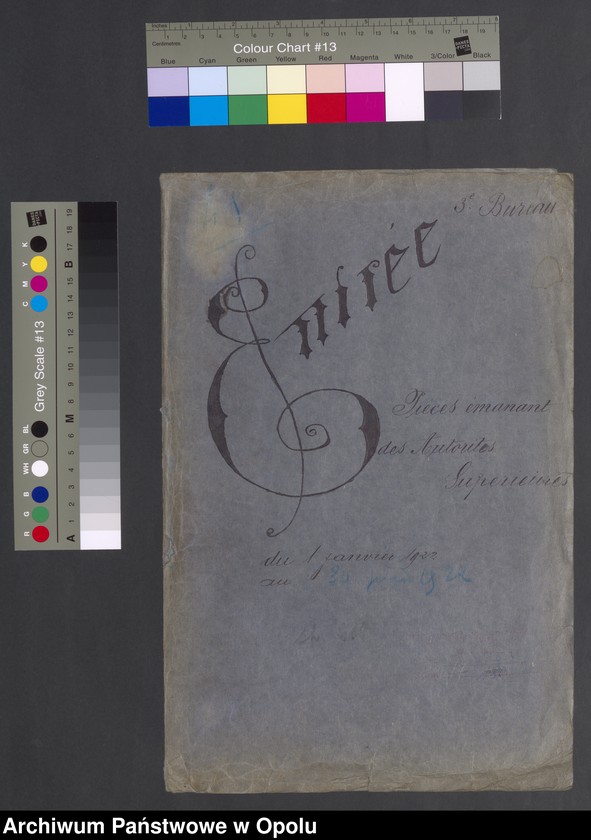 Inches
Centimetres
Colour Chart #13
Blue Cyan Green Yellow Red Magenta White 3/Color Black
Grey Scale #13
R G B WH GR BL C M Y K
A 1 2 3 4 5 6 M 8 9 10 11 12 13 14 15 B 17 18 19
3e Bureau
Entrée
Pièces émanant
des Autorités
Supérieures
du 1 janvier 1922
au 30 juin 1922
Archiwum Państwowe w Opolu